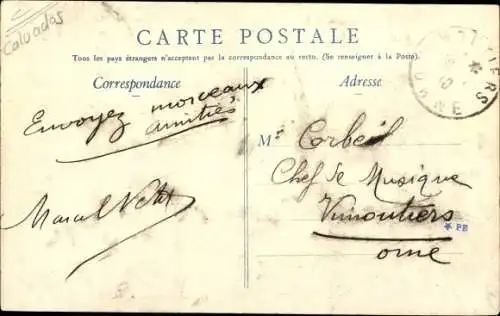 Calvados
CARTE POSTALE
Tous les pays étrangers n'acceptent pas la correspondance au recto. (Se renseigner à la Poste).
Correspondance
Adresse
Envoyez morceaux
amitiés
Marcel
M. Corbeil
Chef de Musique
Vimoutiers
orne
* PE